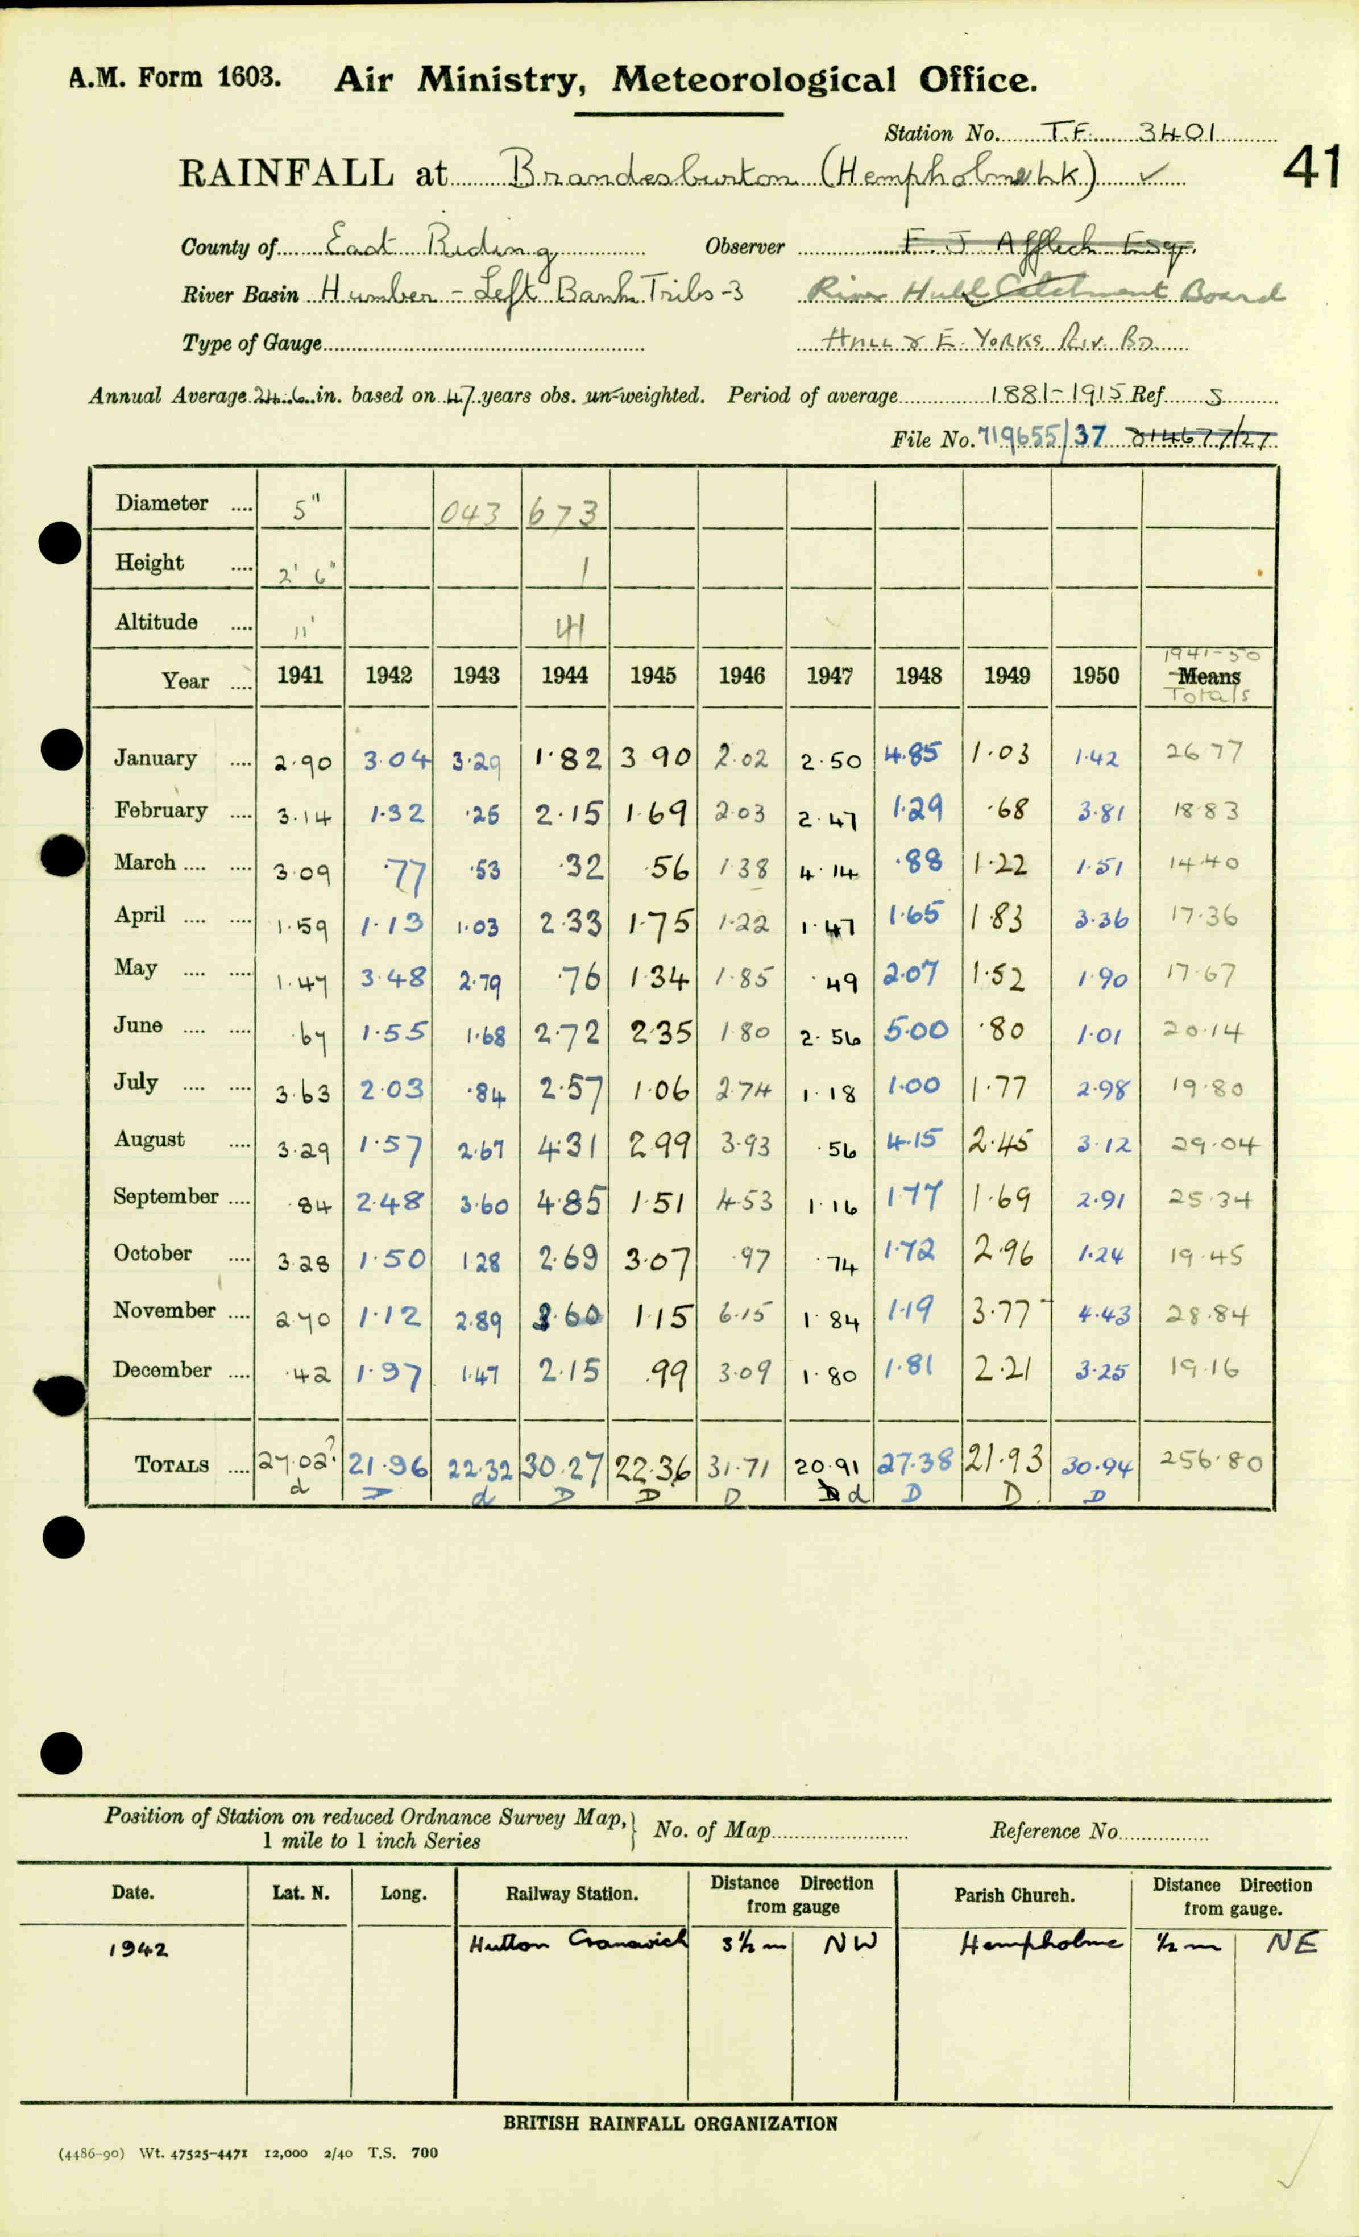 A.M. Form 1603. Air Ministry, Meteorological Office.
Station No. T.F. 3401
41
RAINFALL at Brandesburton (Hempholme Lk) ✓
County of East Riding Observer F. J. Affleck Esq.
River Basin Humber - Left Bank Tribs -3 River Hull Catchment Board
Type of Gauge Hull & E. Yorks Riv. Bd
Annual Average 24.6 in. based on 47 years obs. un-weighted. Period of average 1881-1915 Ref. S
File No. 719655/37 214677/27
Diameter 5" 043 673
Height 2' 6" 1
Altitude 11' 41
1941-50
Year 1941 1942 1943 1944 1945 1946 1947 1948 1949 1950 Means
Totals
January 2.90 3.04 3.29 1.82 3 90 2.02 2.50 4.85 1.03 1.42 26.77
February 3.14 1.32 .25 2.15 1.69 2.03 2.47 1.29 .68 3.81 18.83
March 3.09 .77 .53 .32 .56 1.38 4.14 .88 1.22 1.51 14.40
April 1.59 1.13 1.03 2.33 1.75 1.22 1.47 1.65 1.83 3.36 17.36
May 1.47 3.48 2.79 .76 1.34 1.85 .49 2.07 1.52 1.90 17.67
June .67 1.55 1.68 2.72 2.35 1.80 2.56 5.00 .80 1.01 20.14
July 3.63 2.03 .84 2.57 1.06 2.74 1.18 1.00 1.77 2.98 19.80
August 3.29 1.57 2.67 4.31 2.99 3.93 .56 4.15 2.45 3.12 29.04
September .84 2.48 3.60 4.85 1.51 4.53 1.16 1.77 1.69 2.91 25.34
October 3.28 1.50 1.28 2.69 3.07 .97 .74 1.72 2.96 1.24 19.45
November 2.70 1.12 2.89 3.60 1.15 6.15 1.84 1.19 3.77 4.43 28.84
December .42 1.97 1.47 2.15 .99 3.09 1.80 1.81 2.21 3.25 19.16
TOTALS 27.02? 21.96 22.32 30.27 22.36 31.71 20.91 27.38 21.93 30.94 256.80
d D d D D D D d D D D
Position of Station on reduced Ordnance Survey Map,
1 mile to 1 inch Series
No. of Map Reference No.
Date. Lat. N. Long. Railway Station. Distance Direction from gauge Parish Church. Distance Direction from gauge.
1942 Hutton Cranswick 3½ m NW Hempholme ½ m NE
BRITISH RAINFALL ORGANIZATION
(4486-90) Wt. 47525-4471 12,000 2/40 T.S. 700